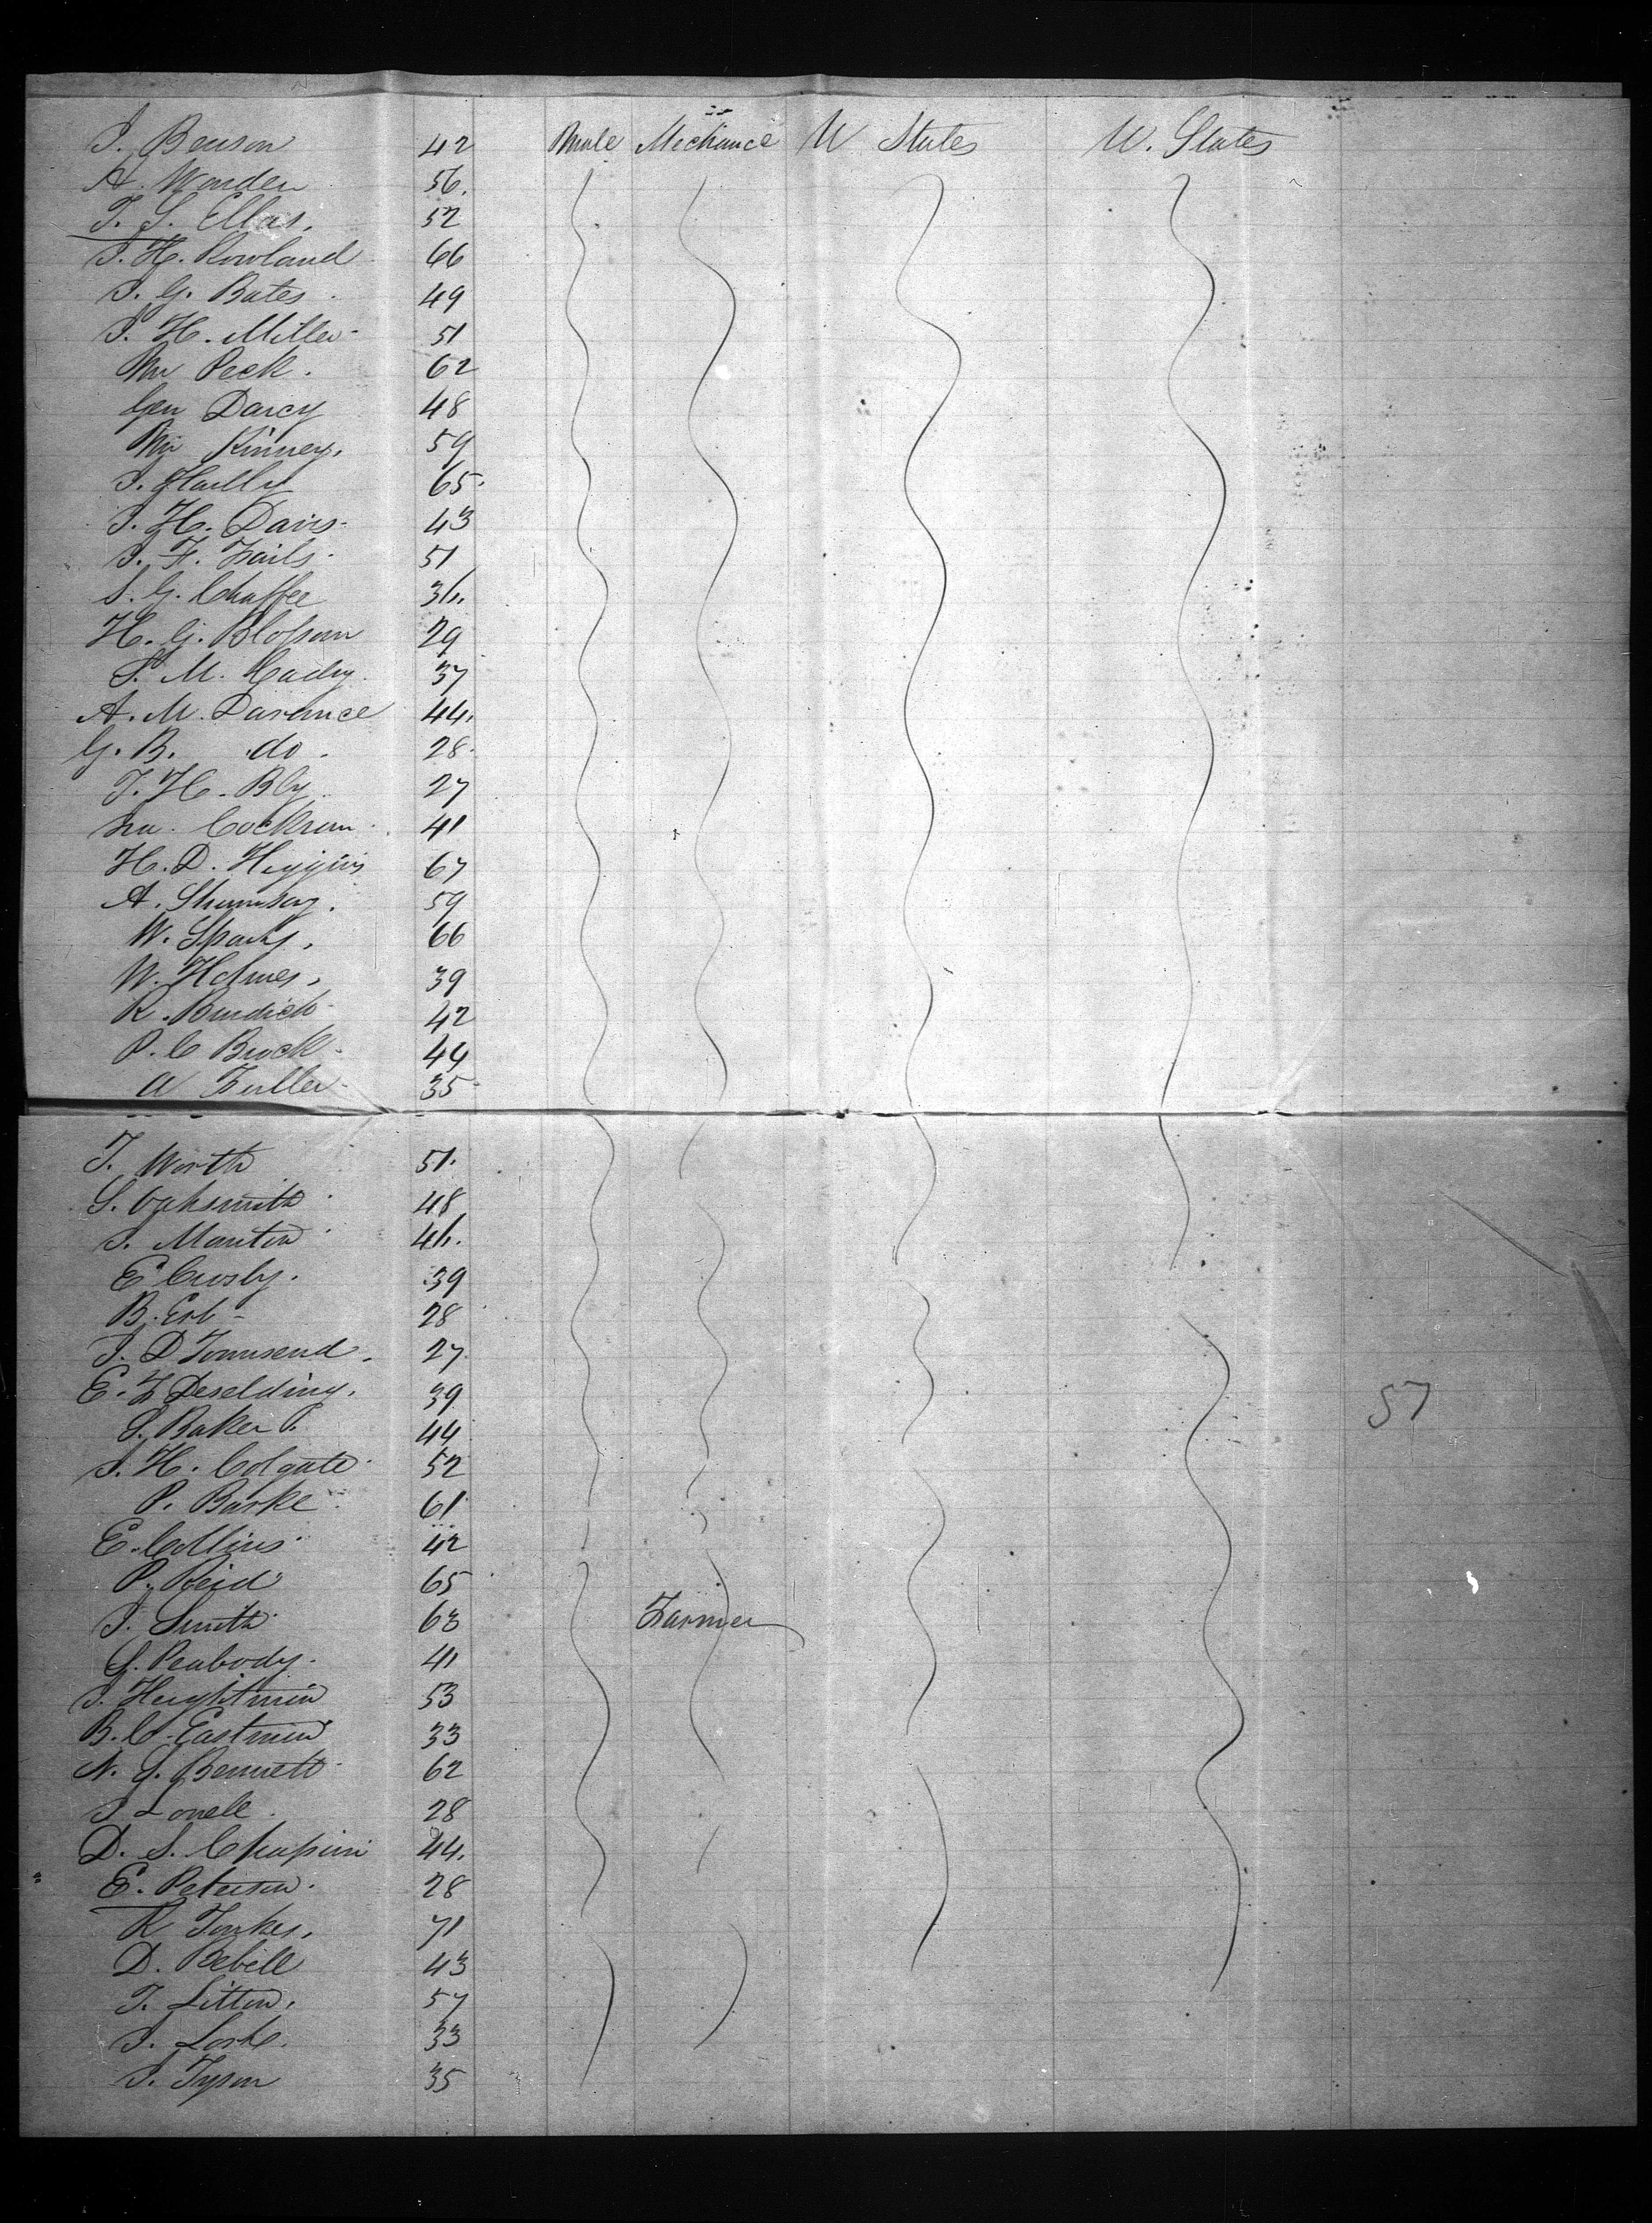 J. Benson 42 Male Mechance U States U. States
A. Worden 56.
T. S. Ellas. 52
J. H. Rowland 66
J. G. Bates 49
J. H. Miller 51
Mr Peck. 62
Gen Darcy 48
Mr Kinney. 59
J. 65
J. H. Davis 43
J. F. Fails 51
S. G. Chaffee 36.
H. G. Blossom 29
S. M. Cady 37
A. M. 44.
G. B. do 28
T. H. Bly 27
Cockran 41
H. D. Higgins 67
A. 59
W. 66
W. Holmes, 39
R. Burdick 42
P. C Brock 44
A Fuller 35
T. Worth 51.
S. Oaksmith 48
J. Manton 46.
E Crosby. 39
B. Erb 28
J. D Townsend. 27
E. F Deselding. 39
S. Baker P. 44
J. H. Colgate 52
P. Barke 61
E. Collins 42
P. Reid 65
J. Smith 63 Farmer
G. Peabody. 41
J. 53
B. C. Eastmin 33
N. G. Bennett 62
J Lonell 28
D. S. Chapin 44.
E. Peterson. 28
R 71
D. Bebell 43
T. Litton. 57
J. 33
J. Tyson 35
57